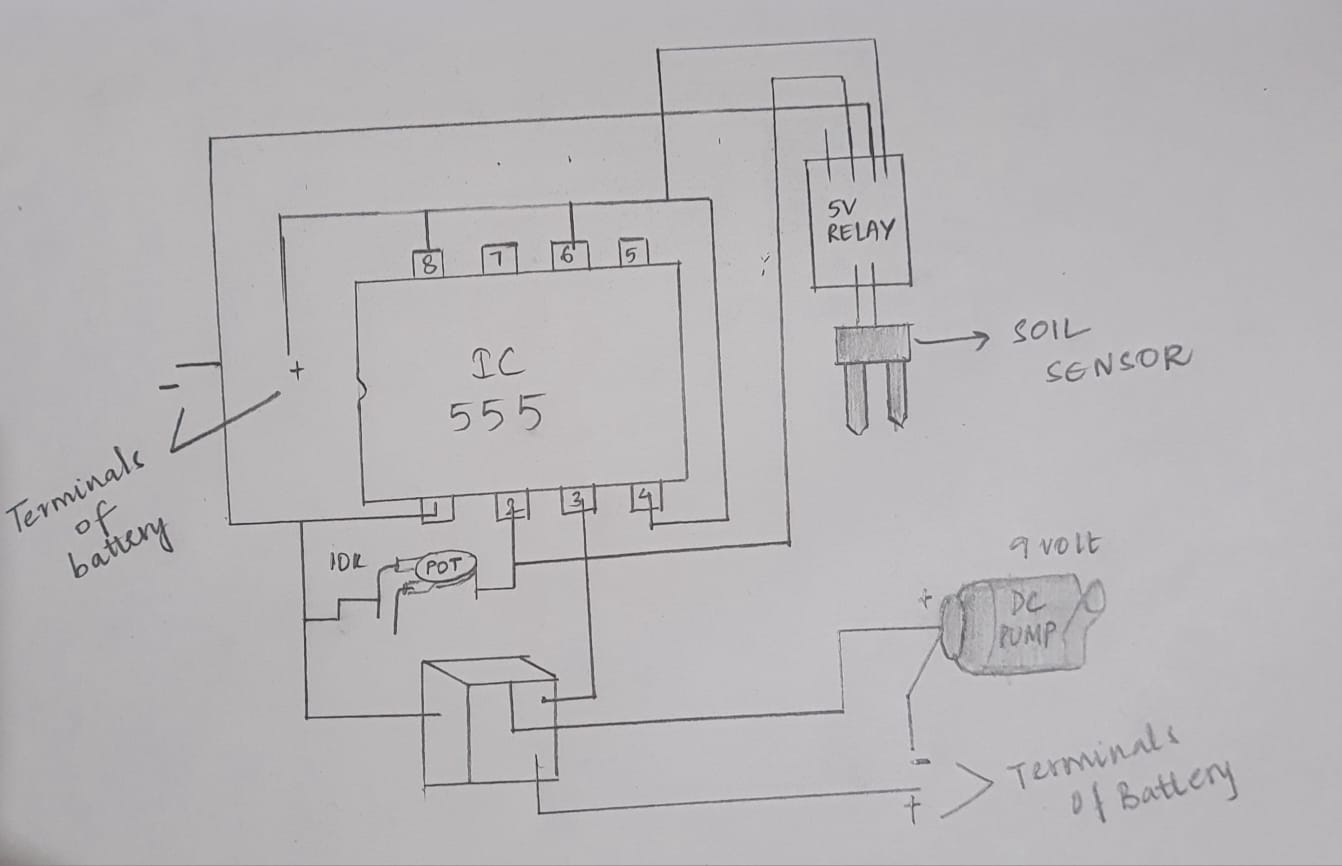 5V
RELAY
8
7
6
5
+
-
IC
555
SOIL
SENSOR
Terminals
of
battery
1
2
3
4
10K
POT
9 volt
+
DC
PUMP
-
+
Terminals
of Battery